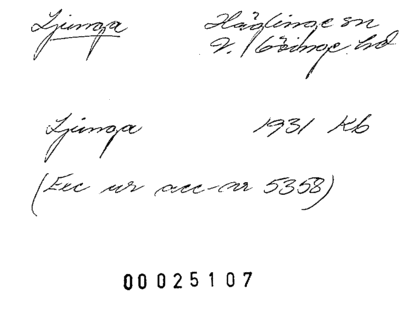 Ljunga Häglinge sn
V. Göinge hd
Ljunga 1931 Kb
(Exc ur acc-nr 5358)
00025107